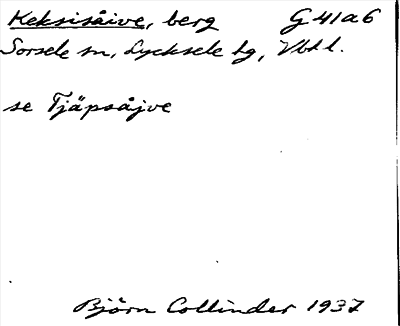 Keksisåive, berg G 41a6
Sorsele sn, Lycksele lg, Vbtl.
se Tjäpsåjve
Björn Collinder 1937